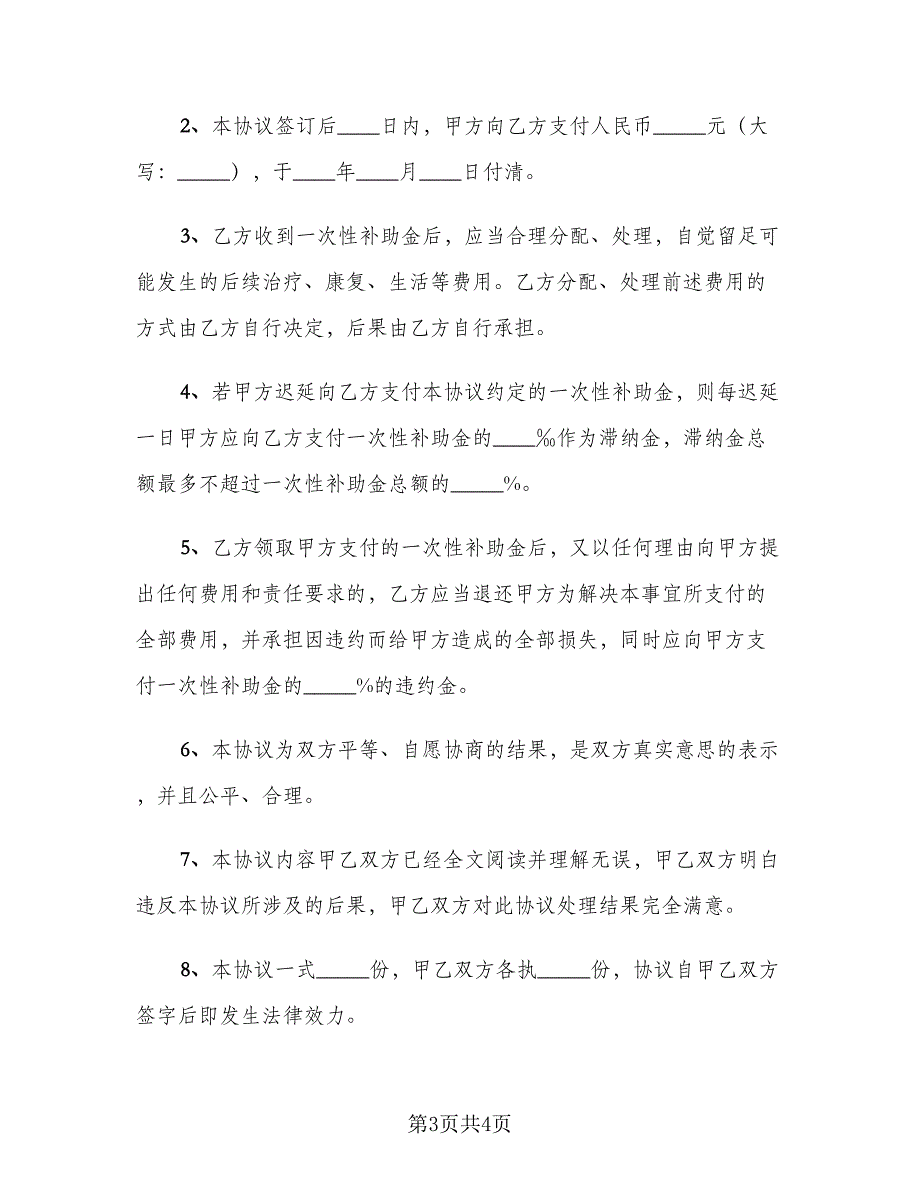 2、本协议签订后____日内，甲方向乙方支付人民币_____元（大
写：_____），于____年____月____日付清。
3、乙方收到一次性补助金后，应当合理分配、处理，自觉留足可
能发生的后续治疗、康复、生活等费用。乙方分配、处理前述费用的
方式由乙方自行决定，后果由乙方自行承担。
4、若甲方迟延向乙方支付本协议约定的一次性补助金，则每迟延
一日甲方应向乙方支付一次性补助金的____‰作为滞纳金，滞纳金总
额最多不超过一次性补助金总额的_____%。
5、乙方领取甲方支付的一次性补助金后，又以任何理由向甲方提
出任何费用和责任要求的，乙方应当退还甲方为解决本事宜所支付的
全部费用，并承担因违约而给甲方造成的全部损失，同时应向甲方支
付一次性补助金的_____%的违约金。
6、本协议为双方平等、自愿协商的结果，是双方真实意思的表示
，并且公平、合理。
7、本协议内容甲乙双方已经全文阅读并理解无误，甲乙双方明白
违反本协议所涉及的后果，甲乙双方对此协议处理结果完全满意。
8、本协议一式_____份，甲乙双方各执_____份，协议自甲乙双方
签字后即发生法律效力。
第3页共4页